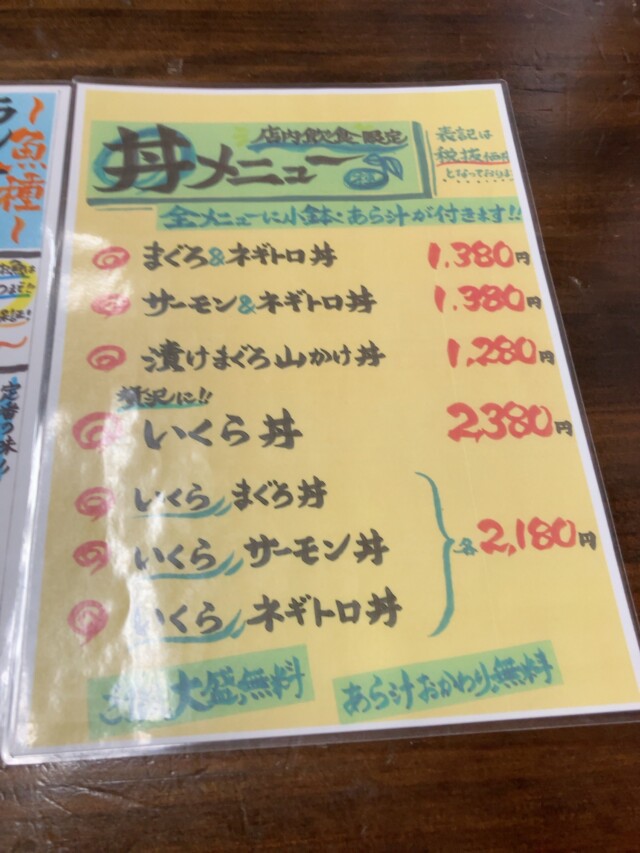 店内飲食限定
丼メニュー
表記は
税抜価格
となっております
全メニューに小鉢、あら汁が付きます!!
まぐろ&ネギトロ丼 1,380円
サーモン&ネギトロ丼 1,380円
漬けまぐろ山かけ丼 1,280円
贅沢に!!
いくら丼 2,380円
いくらまぐろ丼
いくらサーモン丼 各2,180円
いくらネギトロ丼
大盛無料
あら汁おかわり無料
〜魚種〜
定番の味